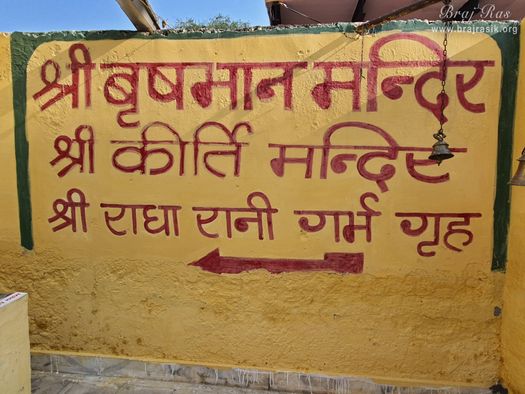 Braj Ras
www.brajrasik.org
श्री बृषमान मन्दिर
श्री कीर्ति मन्दिर
श्री राधा रानी गर्भ गृह